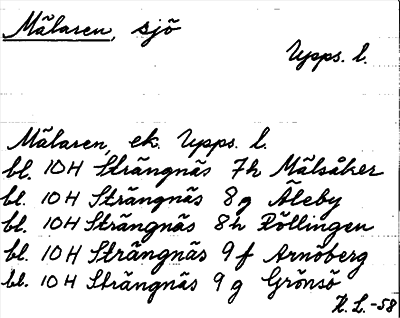 Mälaren, sjö
Upps. l.
Mälaren, ek. Upps. l.
bl. 10H Strängnäs 7h Mälsåker
bl. 10H Strängnäs 8g Åleby
bl. 10H Strängnäs 8h Röllingen
bl. 10H Strängnäs 9f Arnöberg
bl. 10H Strängnäs 9g Grönsö
K. L. -58